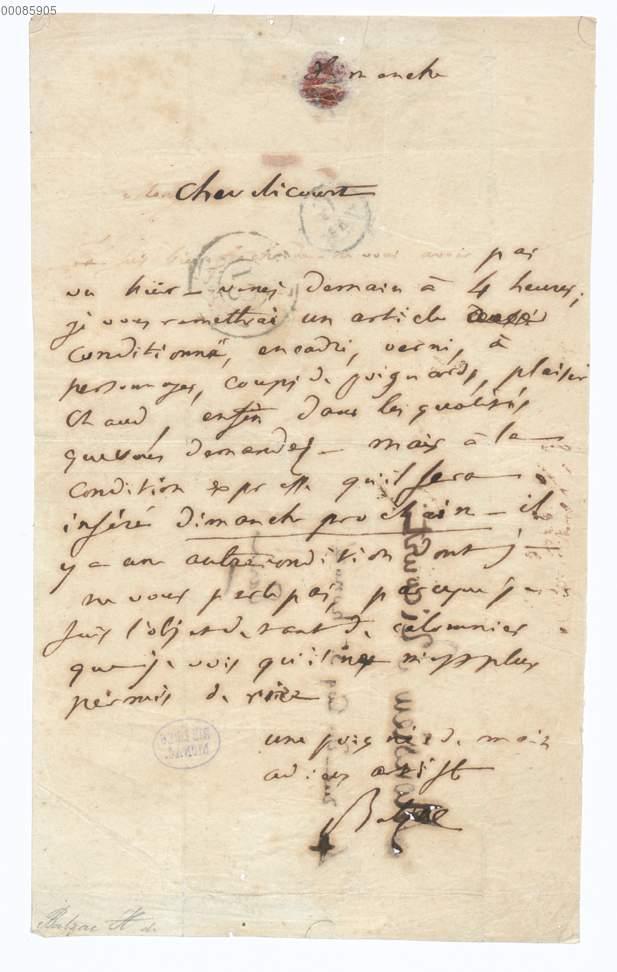 00085905
Dimanche
Cher Ricourt
vous avoir pas
vu hier – venez demain à 4 heures,
je vous remettrai un article
conditionné, encadré, verni, à
personnages, coups de poignards, plaisir
chaud, enfin dans les qualités
que vous demandez – mais à la
condition expresse qu'il sera
inséré dimanche prochain – il
y a une autre condition dont je
ne vous parle pas, parceque je
suis l'objet de tant de calomnies
que je vois qu'il n'est plus
permis de
une poignée de main
adieu artiste
Balzac
Balzac H de